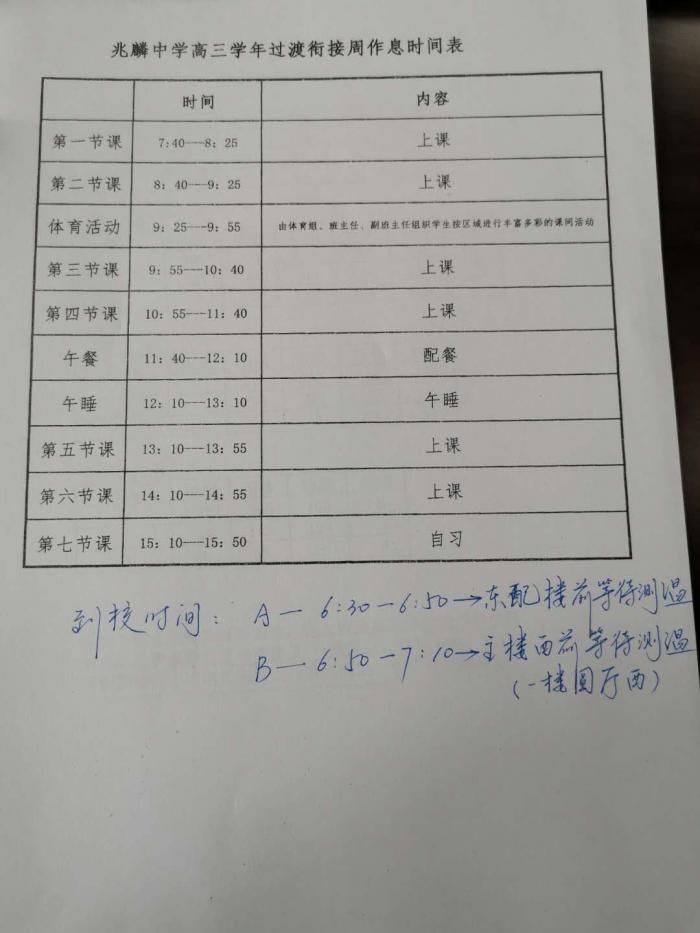 兆麟中学高三学年过渡衔接周作息时间表
时间 内容
第一节课 7:40---8: 25 上课
第二节课 8: 40---9: 25 上课
体育活动 9: 25---9: 55 由体育组、班主任、副班主任组织学生按区域进行丰富多彩的课间活动
第三节课 9: 55---10: 40 上课
第四节课 10: 55---11: 40 上课
午餐 11: 40---12: 10 配餐
午睡 12: 10---13: 10 午睡
第五节课 13: 10---13: 55 上课
第六节课 14: 10---14: 55 上课
第七节课 15: 10---15: 50 自习
到校时间: A— 6:30—6:50→东配楼前等待测温
B— 6:50—7:10→主楼西前等待测温
(一楼圆厅西)